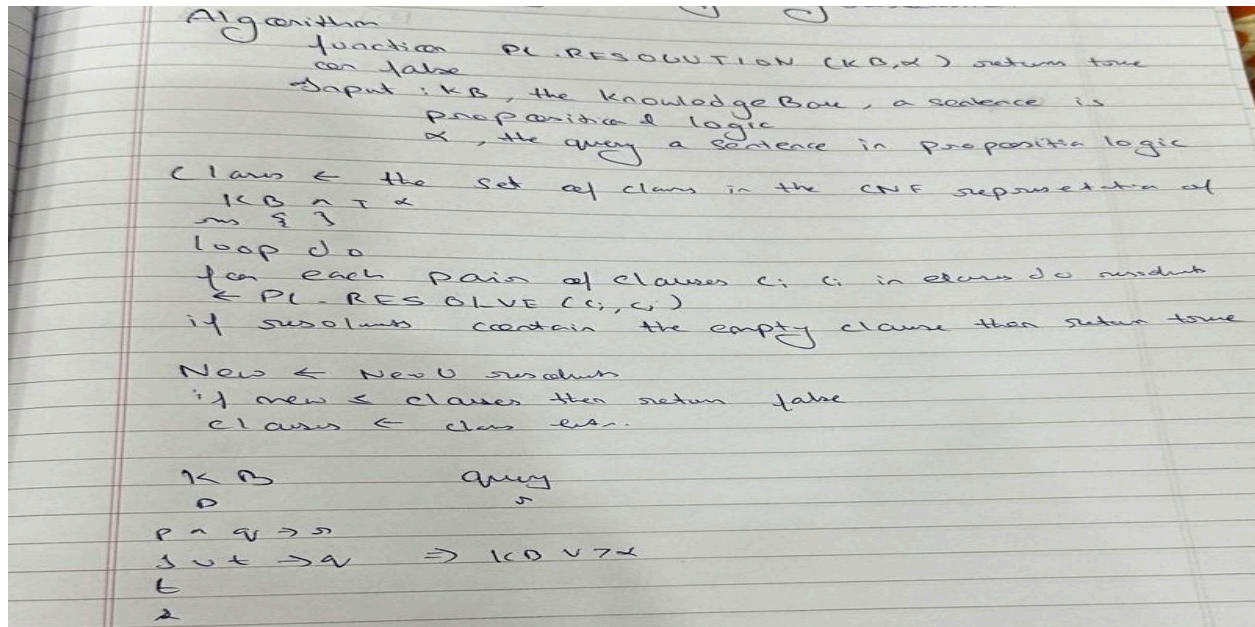 Algorithm
function PL-RESOLUTION (KB, α) return true
or false
Input : KB, the Knowledge Base, a sentence is
propositional logic
α, the query a sentence in proposition logic
Clauses ← the set of claus in the CNF representation of
KB ∧ ¬ α
{ }
loop do
for each pair of clauses Ci Cj in clauses do
← PL-RESOLVE (Ci, Cj)
if resolvents contain the empty clause then return true
New ← New U resolvents
if new ≤ clauses then return false
clauses ←
KB query
P r
P ∧ q → r
s ∪ t → q ⇒ KB ∨ ¬α
t